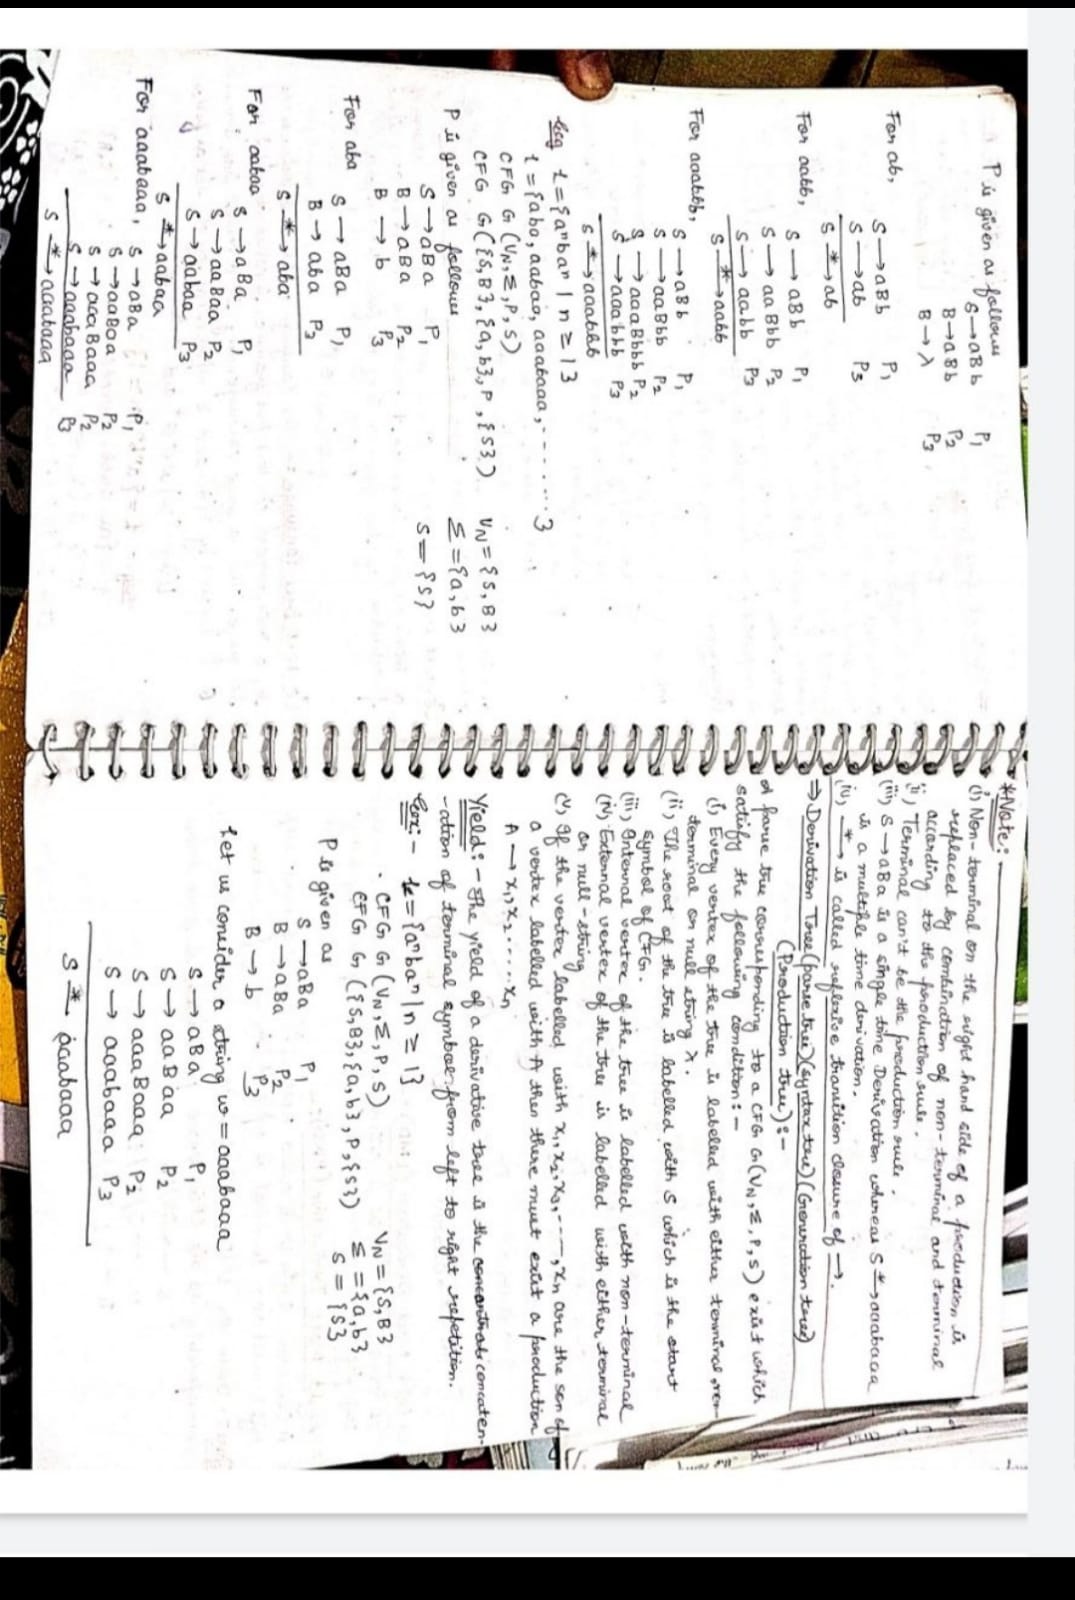 P is given as follows
S→aBb P₁
B→aBb P₂
B→λ P₃
For ab,
S→aBb P₁
S→ab P₃
S *→ ab
For aabb,
S→aBb P₁
S→aaBbb P₂
S→aabb P₃
S *→ aabb
For aaabbb,
S→aBb P₁
S→aaBbb P₂
S→aaaBbbb P₂
S→aaabbb P₃
S *→ aaabbb
Eg L={aⁿbaⁿ | n≥1}
L={aba, aabaa, aaabaaa,--------}
CFG G (V_N, Σ, P, S)
CFG G({S,B},{a,b},P,{S}) V_N={S,B}
Σ={a,b}
P is given as follows
S={S}
S→aBa P₁
B→aBa P₂
B→b P₃
For aba
S→aBa P₁
B→aba P₃
S *→ aba
For aabaa
S→aBa P₁
S→aaBaa P₂
S→aabaa P₃
S *→ aabaa
For aaabaaa,
S→aBa P₁
S→aaBaa P₂
S→aaaBaaa P₂
S→aaabaaa P₃
S *→ aaabaaa
*Note:
(i) Non-terminal on the right hand side of a production is
replaced by combination of non-terminal and terminal
according to the production rule.
(ii) Terminal can't be the production rule.
(iii) S→aBa is a single time Derivation whereas S *→ aaabaaa
is a multiple time derivation.
(iv) *→ is called reflexive transition closure of →.
⇒ Derivation Tree (parse tree)(syntax tree)(Generation tree)
(Production tree):-
A parse tree corresponding to a CFG G(V_N, Σ, P, S) exist which
satisfy the following condition:-
(i) Every vertex of the tree is labelled with either terminal, non-
terminal or null string λ.
(ii) The root of the tree is labelled with S which is the start
symbol of CFG.
(iii) Internal vertex of the tree is labelled with non-terminal
(iv) External vertex of the tree is labelled with either terminal
or null-string
(v) If the vertex labelled with x₁,x₂,x₃,----,xn are the son of
a vertex labelled with A then there must exist a production
A → x₁,x₂.....xn
Yield:- The yield of a derivative tree is the concaten-
-ation of terminal symbol from left to right repetition.
Ex:- L={aⁿbaⁿ | n≥1}
CFG G (V_N, Σ, P, S) V_N={S,B}
CFG G ({S,B},{a,b},P,{S}) Σ={a,b}
S={S}
P is given as
S→aBa P₁
B→aBa P₂
B→b P₃
Let us consider a string w=aaabaaa
S→aBa P₁
S→aaBaa P₂
S→aaaBaaa P₂
S→aaabaaa P₃
S *— aaabaaa